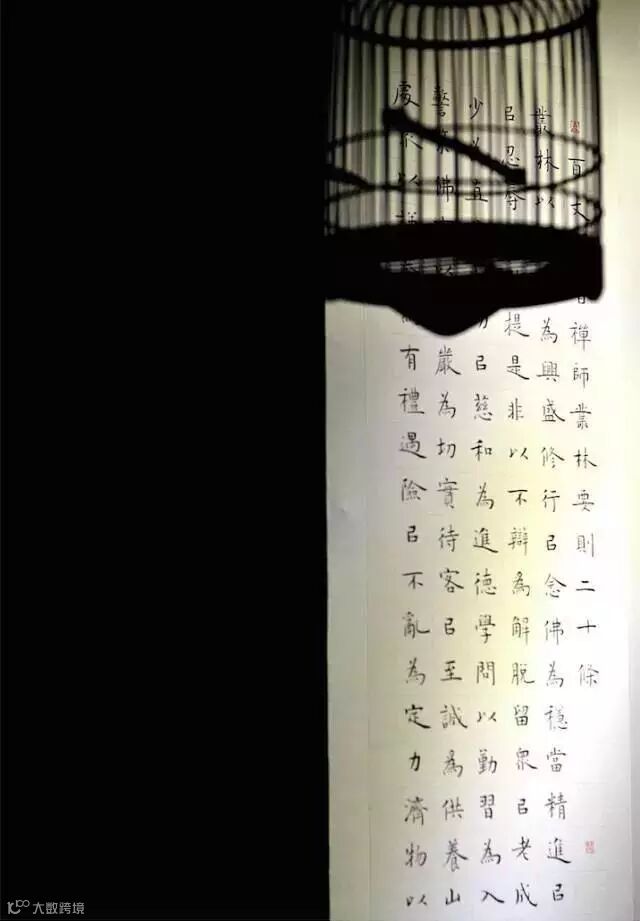 百丈禪師叢林要則二十條
叢林以為興盛修行㠯念佛為穩當精進㠯
㠯忍辱提是非以不辯為解脫留眾㠯老成
少為直㠯慈和為進德學問以勤習為入
警策佛嚴為切實待客㠯至誠為供養山
處眾以謙為有禮遇險㠯不亂為定力濟物以
大数跨境